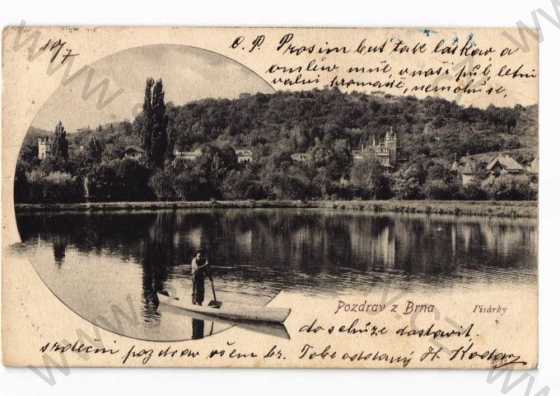 10/7
C. P. Prosím buď tak láskav a
omluv mně, v naší půl letní
valní hromadě, nemohu se,
Pozdrav z Brna Pisárky
do schůze dostavit.
srdečni pozdrav všem br. Tobě oddaný H.